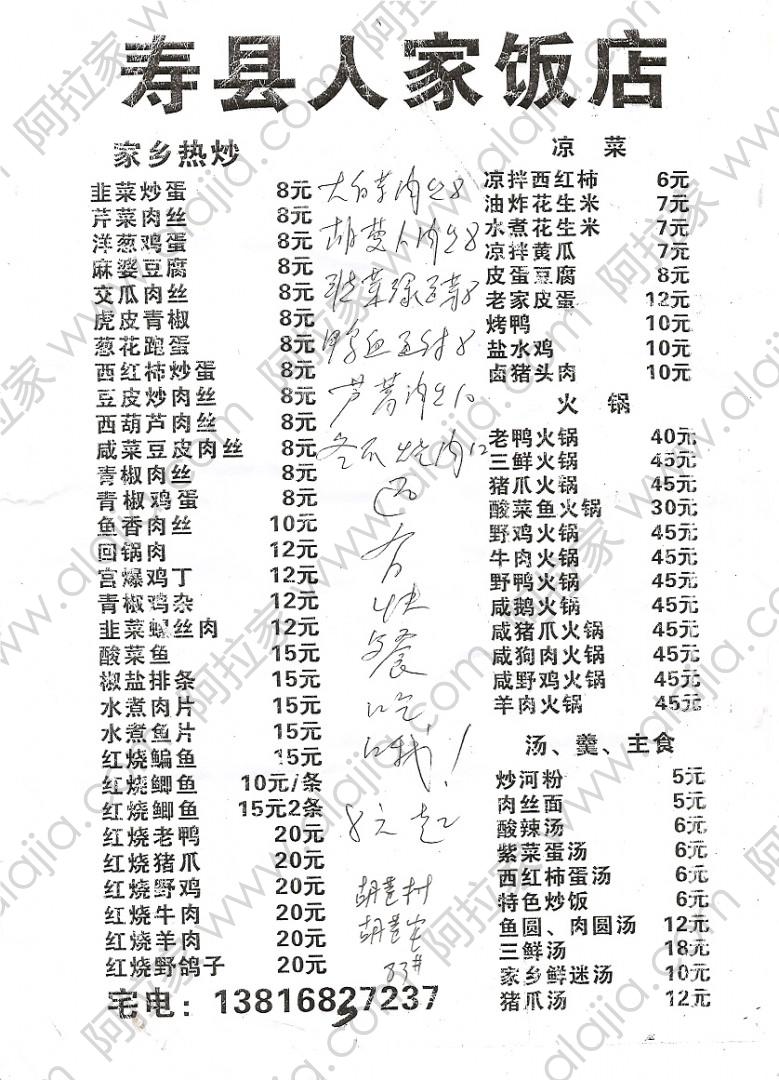 寿县人家饭店
家乡热炒
韭菜炒蛋 8元
芹菜肉丝 8元
洋葱鸡蛋 8元
麻婆豆腐 8元
交瓜肉丝 8元
虎皮青椒 8元
葱花跑蛋 8元
西红柿炒蛋 8元
豆皮炒肉丝 8元
西葫芦肉丝 8元
咸菜豆皮肉丝 8元
青椒肉丝 8元
青椒鸡蛋 8元
鱼香肉丝 10元
回锅肉 12元
宫爆鸡丁 12元
青椒鸡杂 12元
韭菜螺丝肉 12元
酸菜鱼 15元
椒盐排条 15元
水煮肉片 15元
水煮鱼片 15元
红烧鳊鱼 15元
红烧鲫鱼 10元/条
红烧鲫鱼 15元2条
红烧老鸭 20元
红烧猪爪 20元
红烧野鸡 20元
红烧牛肉 20元
红烧羊肉 20元
红烧野鸽子 20元
大白菜肉丝8
胡萝卜肉丝8
韭菜绿豆芽8
鸭血豆付8
芦蒿肉丝10
冬瓜烧肉12
还
有
快
餐
吃
哦!
8元起
83#
凉 菜
凉拌西红柿 6元
油炸花生米 7元
水煮花生米 7元
凉拌黄瓜 7元
皮蛋豆腐 8元
老家皮蛋 12元
烤鸭 10元
盐水鸡 10元
卤猪头肉 10元
火 锅
老鸭火锅 40元
三鲜火锅 45元
猪爪火锅 45元
酸菜鱼火锅 30元
野鸡火锅 45元
牛肉火锅 45元
野鸭火锅 45元
咸鹅火锅 45元
咸猪爪火锅 45元
咸狗肉火锅 45元
咸野鸡火锅 45元
羊肉火锅 45元
汤、羹、主食
炒河粉 5元
肉丝面 5元
酸辣汤 6元
紫菜蛋汤 6元
西红柿蛋汤 6元
特色炒饭 6元
鱼圆、肉圆汤 12元
三鲜汤 18元
家乡鲜迷汤 10元
猪爪汤 12元
宅电：13816857237
阿拉家 www.alajia.com